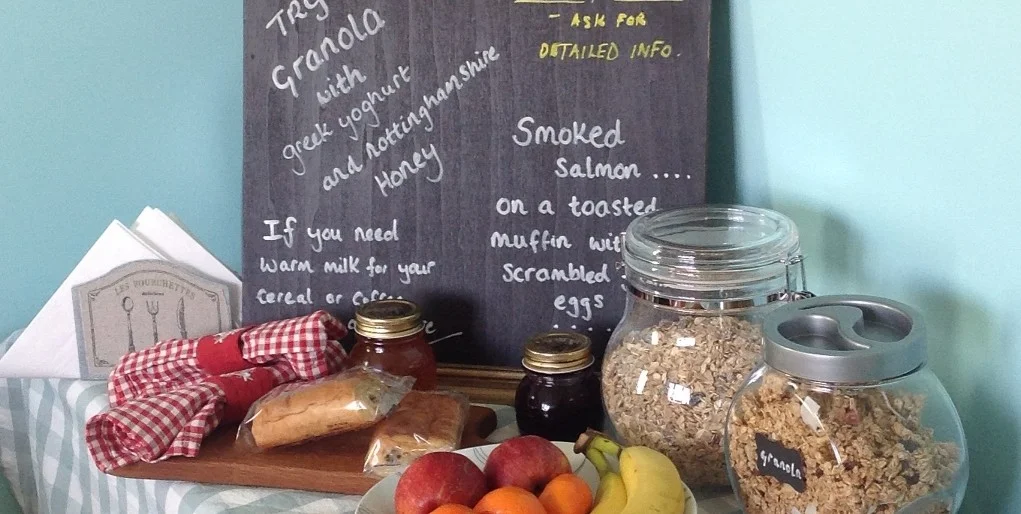 TRY
Granola
with
greek yoghurt
and nottinghamshire
Honey
If you need
warm milk for your
cereal or coffee
- ASK FOR
DETAILED INFO.
Smoked
Salmon ....
on a toasted
muffin with
Scrambled
eggs
.....
LES FOURCHETTES
Granola